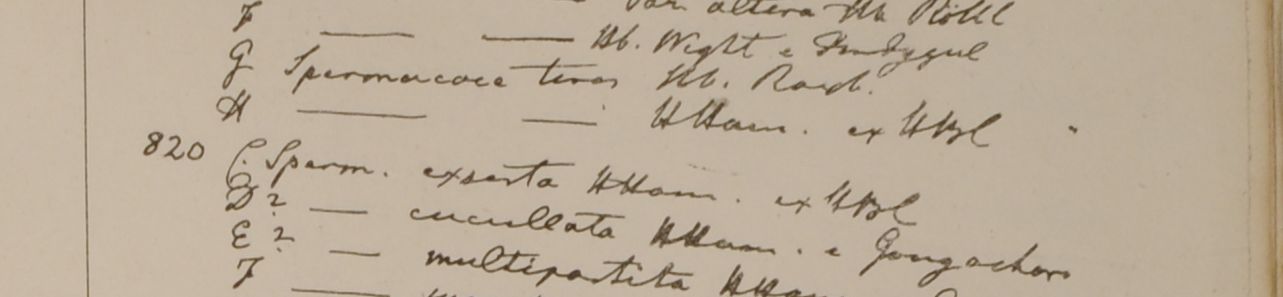 F — — Var. altera Hb. Rottl
G — — Hb. Wight e Dindygul
Spermacoce teres Hb. Roxb.
H — — HHam. ex HBC
820 C. Sperm. exserta HHam. ex HBC
D? — cucullata HHam. e Gongachora
E? — multipartita HHam
F —